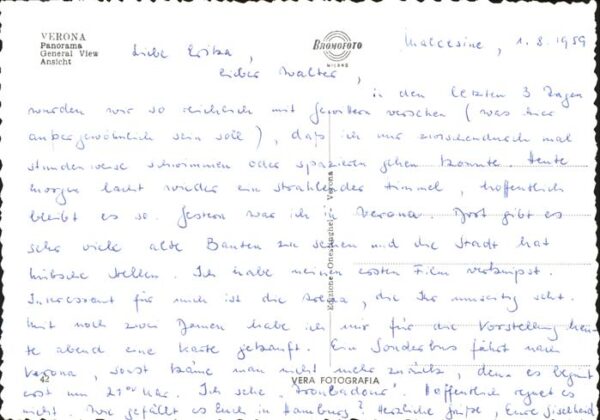 VERONA
Panorama
General View
Ansicht
BROMOFOTO
MILANO
Malcesine, 1.8.1959
Liebe Erika,
lieber Walter,
in den letzten 3 Tagen
wurden wir so reichlich mit Gewittern versehen (was hier
außergewöhnlich sein soll), daß ich nur zwischendurch mal
stundenweise schwimmen oder spazieren gehen konnte. Heute
morgen lacht wieder ein strahlender Himmel, hoffentlich
bleibt es so. Gestern war ich in Verona. Dort gibt es
sehr viele alte Bauten zu sehen und die Stadt hat
hübsche Stellen. Ich habe meinen ersten Film verknipst.
Interessant für mich ist die Arena, die Ihr umseitig seht.
Mit noch zwei Damen habe ich mir für die Vorstellung heu-
te abend eine Karte gekauft. Ein Sonderbus fährt nach
Verona, sonst käme man nicht mehr zurück, denn es beginnt
erst um 21⁰⁰ Uhr. Ich sehe "Troubadour". Hoffentlich regnet es
nicht. Wie gefällt es Euch in Hamburg? Herzliche Grüße, Eure
Edizione Onestinghel - Verona
42
VERA FOTOGRAFIA